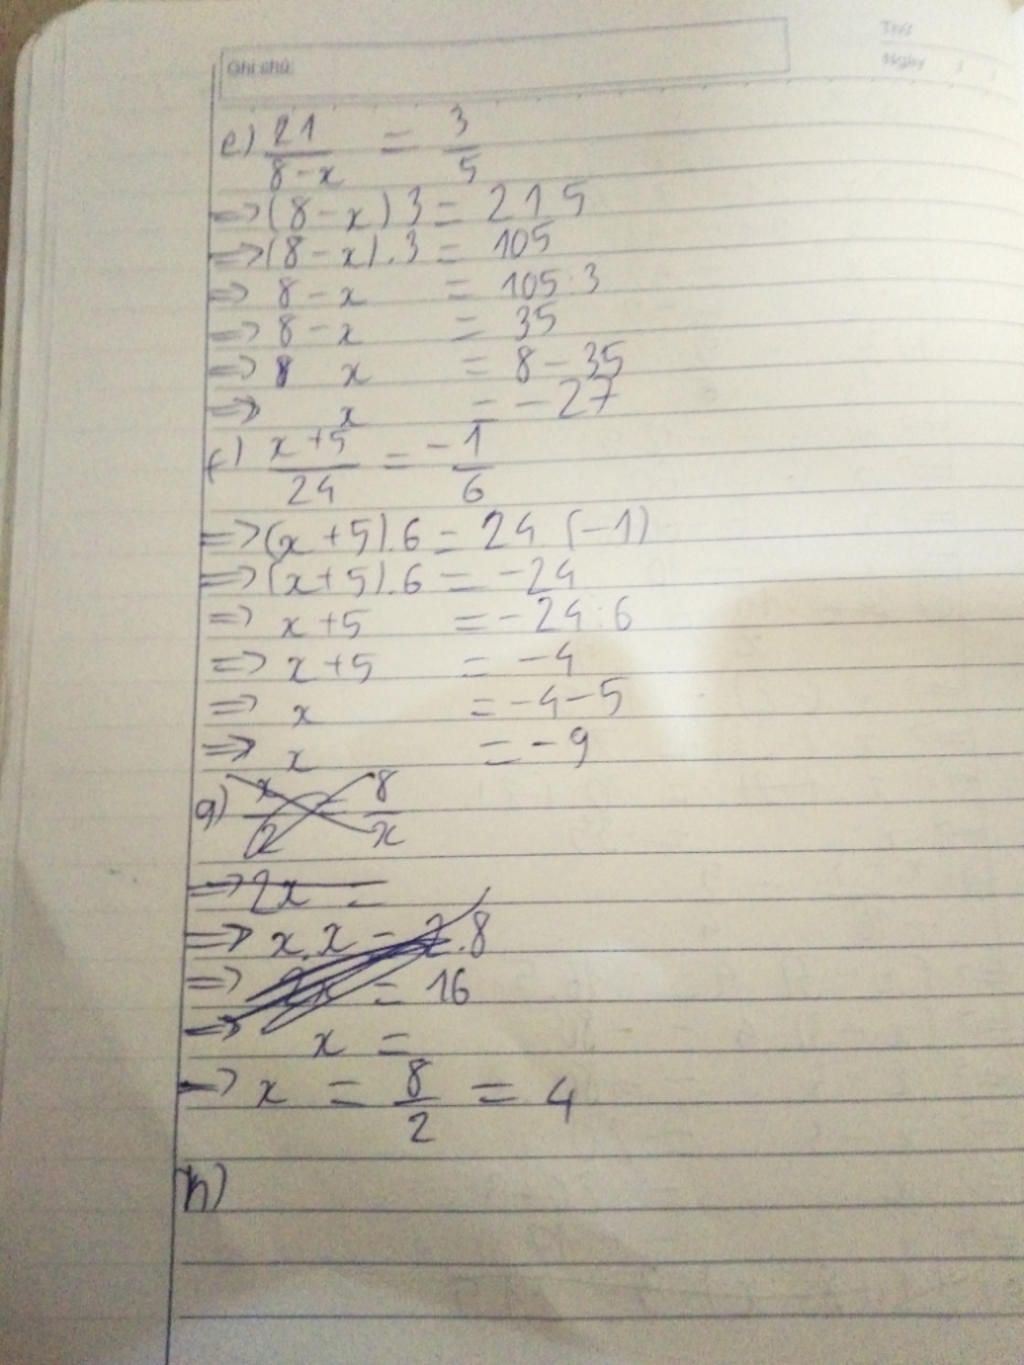 Ghi chú:
Thứ
Ngày
e) 21/(8-x) = 3/5
=> (8-x) 3 = 21 5
=> (8-x).3 = 105
=> 8-x = 105:3
=> 8-x = 35
=> 8 x = 8-35
=> x = -27
f) (x+5)/24 = -1/6
=> (x+5).6 = 24 (-1)
=> (x+5).6 = -24
=> x+5 = -24:6
=> x+5 = -4
=> x = -4-5
=> x = -9
g) x/2 = 8/x
=> 2x =
=> x.x = 2.8
=> 2x = 16
=> x =
=> x = 8/2 = 4
h)